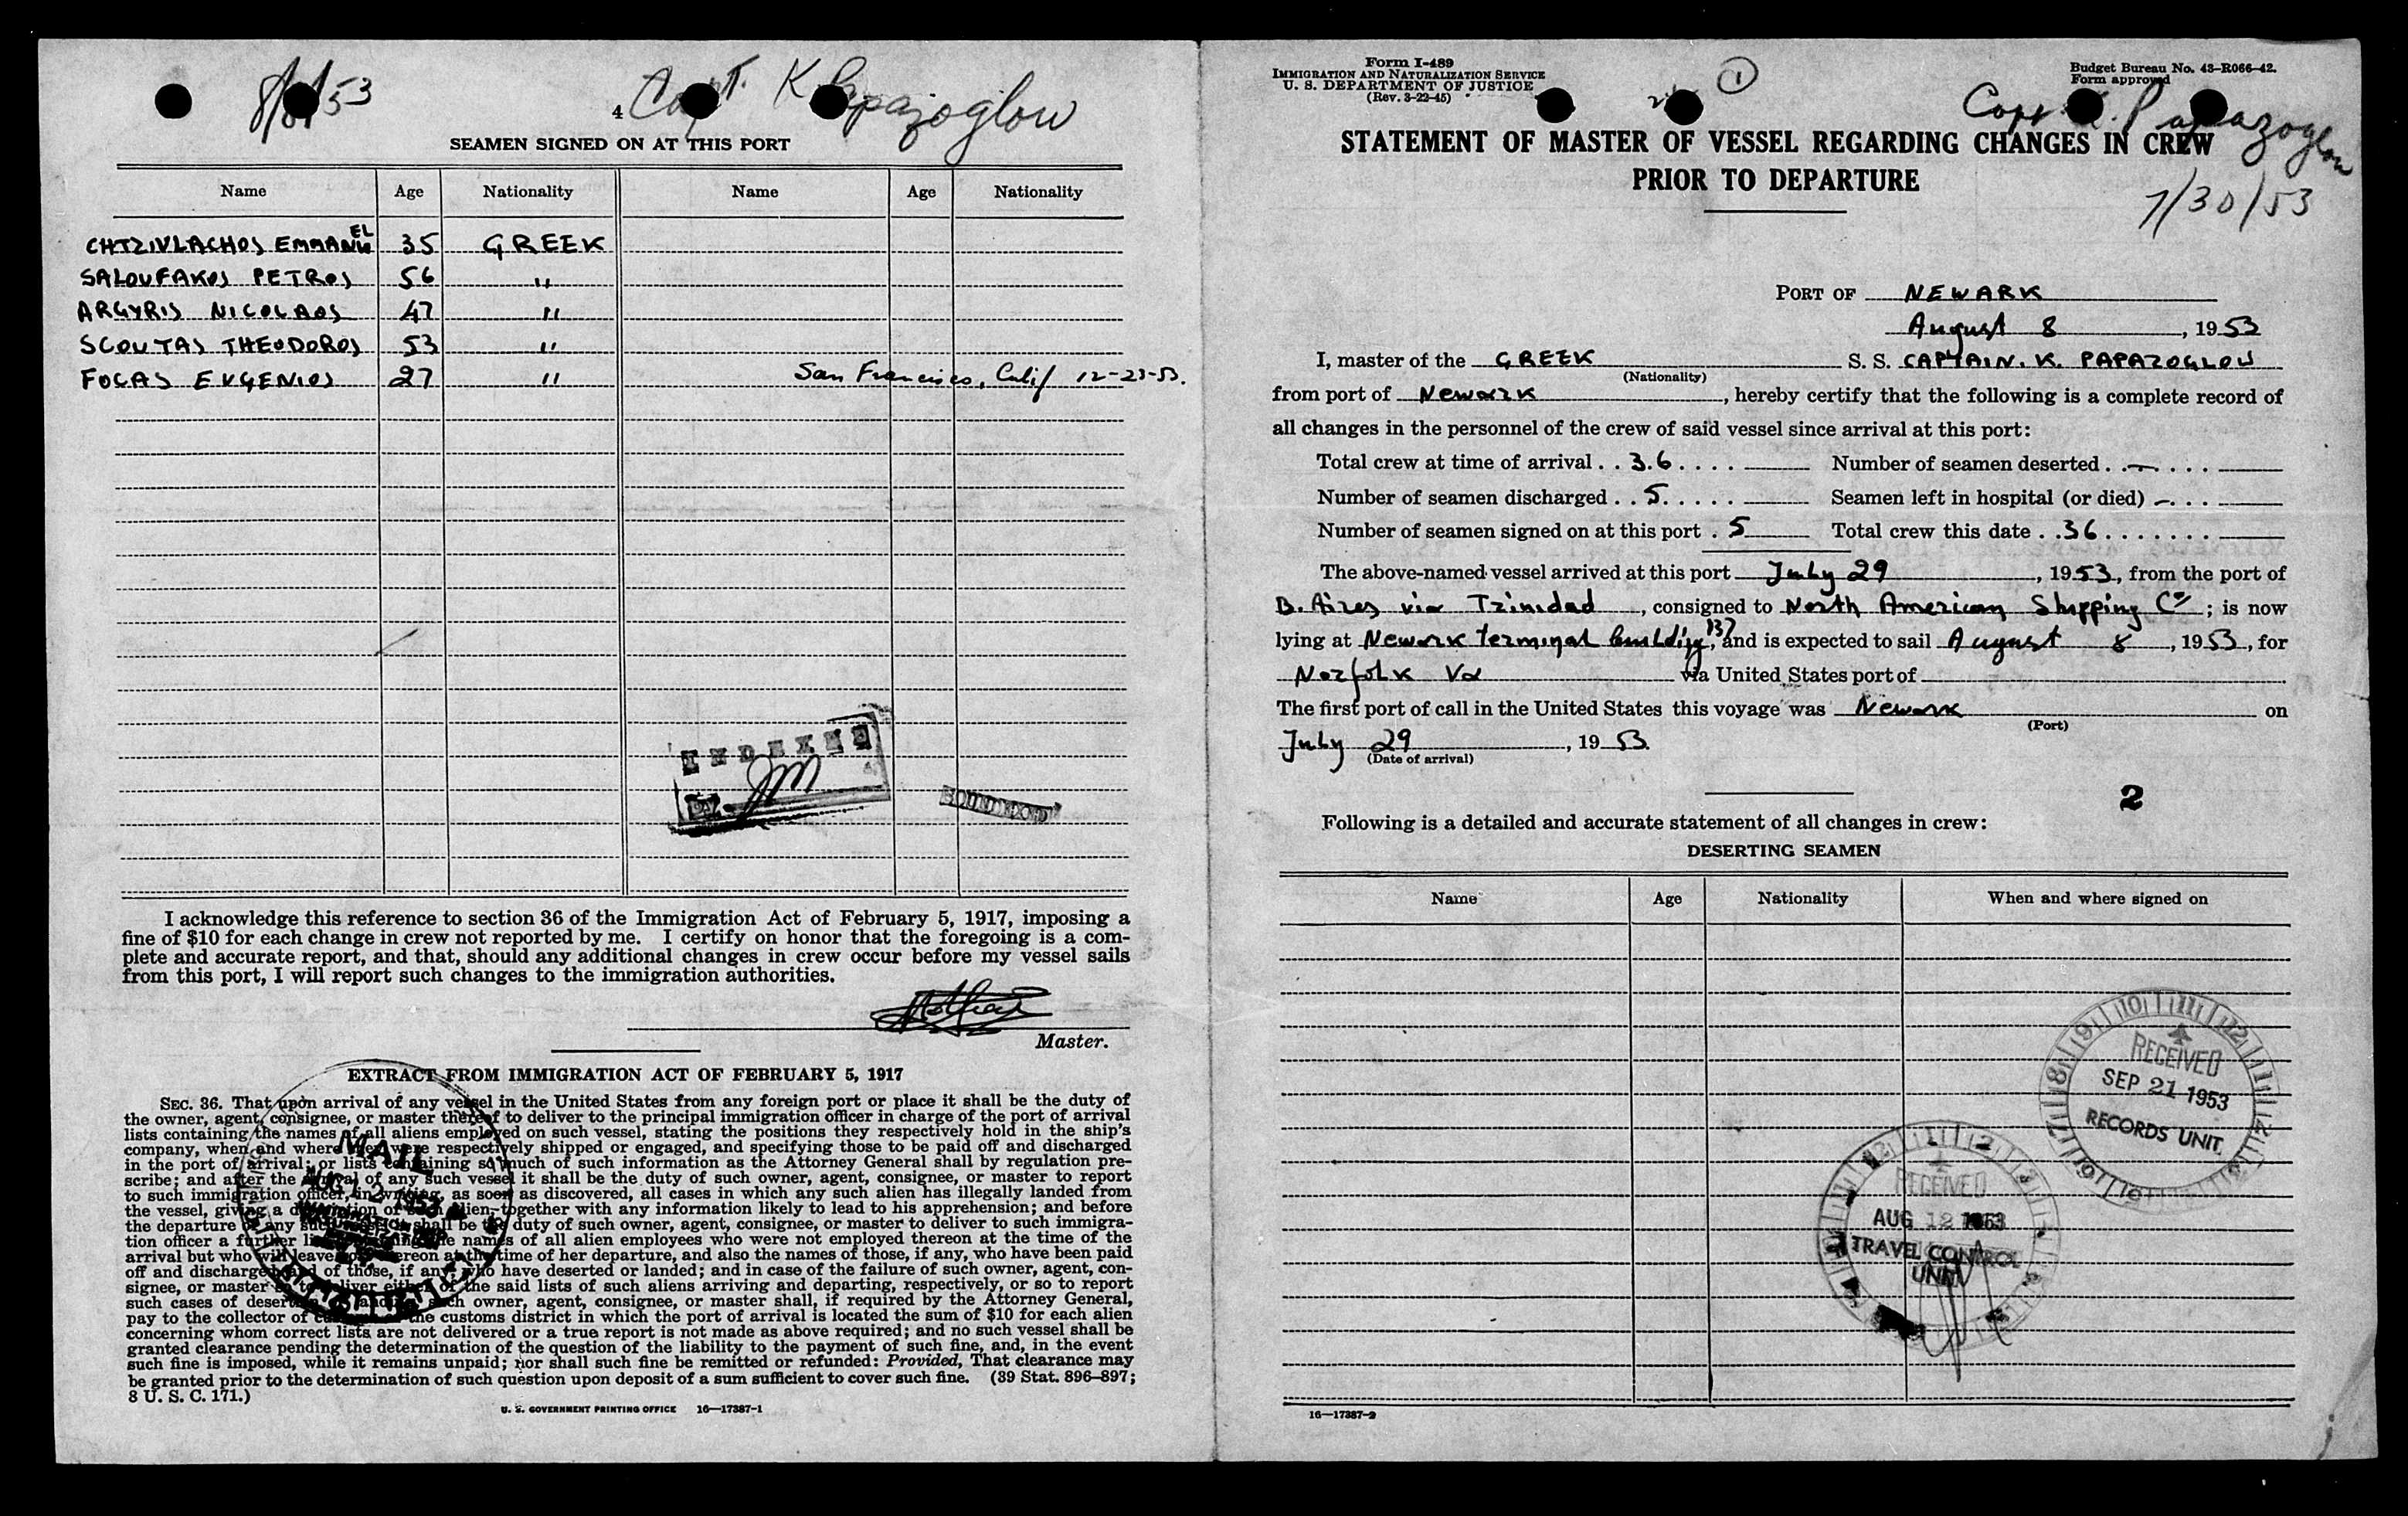 8/8/53
4 Capt. K Papazoglou
SEAMEN SIGNED ON AT THIS PORT
Name Age Nationality Name Age Nationality
CHTZIVLACHOS EMMANUEL 35 GREEK
SALOUFAKOS PETROS 56 "
ARGYRIS NICOLAOS 47 "
SCOUTAS THEODOROS 53 "
FOCAS EVGENIOS 27 " San Francisco, Calif 12-23-53.
INDEXED
I acknowledge this reference to section 36 of the Immigration Act of February 5, 1917, imposing a
fine of $10 for each change in crew not reported by me. I certify on honor that the foregoing is a com-
plete and accurate report, and that, should any additional changes in crew occur before my vessel sails
from this port, I will report such changes to the immigration authorities.
Master.
EXTRACT FROM IMMIGRATION ACT OF FEBRUARY 5, 1917
SEC. 36. That upon arrival of any vessel in the United States from any foreign port or place it shall be the duty of
the owner, agent, consignee, or master thereof to deliver to the principal immigration officer in charge of the port of arrival
lists containing the names of all aliens employed on such vessel, stating the positions they respectively hold in the ship's
company, when and where they were respectively shipped or engaged, and specifying those to be paid off and discharged
in the port of arrival; or lists containing so much of such information as the Attorney General shall by regulation pre-
scribe; and after the arrival of any such vessel it shall be the duty of such owner, agent, consignee, or master to report
to such immigration officer, in writing, as soon as discovered, all cases in which any such alien has illegally landed from
the vessel, giving a description of such alien, together with any information likely to lead to his apprehension; and before
the departure of any such vessel it shall be the duty of such owner, agent, consignee, or master to deliver to such immigra-
tion officer a further list containing the names of all alien employees who were not employed thereon at the time of the
arrival but who will leave port thereon at the time of her departure, and also the names of those, if any, who have been paid
off and discharged, and of those, if any, who have deserted or landed; and in case of the failure of such owner, agent, con-
signee, or master so to deliver either of the said lists of such aliens arriving and departing, respectively, or so to report
such cases of desertion or landing, such owner, agent, consignee, or master shall, if required by the Attorney General,
pay to the collector of customs of the customs district in which the port of arrival is located the sum of $10 for each alien
concerning whom correct lists are not delivered or a true report is not made as above required; and no such vessel shall be
granted clearance pending the determination of the question of the liability to the payment of such fine, and, in the event
such fine is imposed, while it remains unpaid; nor shall such fine be remitted or refunded: Provided, That clearance may
be granted prior to the determination of such question upon deposit of a sum sufficient to cover such fine. (39 Stat. 896–897;
8 U. S. C. 171.)
MAIL
AUG 12 1953
U. S. GOVERNMENT PRINTING OFFICE 16—17387-1
Form I-489
IMMIGRATION AND NATURALIZATION SERVICE
U. S. DEPARTMENT OF JUSTICE
(Rev. 3-22-45)
1
Budget Bureau No. 43-R066-42.
Form approved
Capt K. Papazoglou
STATEMENT OF MASTER OF VESSEL REGARDING CHANGES IN CREW
PRIOR TO DEPARTURE
7/30/53
PORT OF NEWARK
August 8, 1953
I, master of the GREEK S. S. CAPTAIN. K. PAPAZOGLOU
(Nationality)
from port of Newark, hereby certify that the following is a complete record of
all changes in the personnel of the crew of said vessel since arrival at this port:
Total crew at time of arrival . . 36 . . . . Number of seamen deserted . . — . . . .
Number of seamen discharged . . 5 . . . . . Seamen left in hospital (or died) — . . .
Number of seamen signed on at this port . 5 Total crew this date . . 36 . . . . . . .
The above-named vessel arrived at this port July 29, 1953, from the port of
B. Aires via Trinidad, consigned to North American Shipping Co; is now
lying at Newark terminal building 137, and is expected to sail August 8, 1953, for
Norfolk Va via United States port of
The first port of call in the United States this voyage was Newark on
(Port)
July 29, 1953.
(Date of arrival)
2
Following is a detailed and accurate statement of all changes in crew:
DESERTING SEAMEN
Name Age Nationality When and where signed on
RECEIVED
SEP 21 1953
RECORDS UNIT
RECEIVED
AUG 12 1953
TRAVEL CONTROL
UNIT
16—17387-2